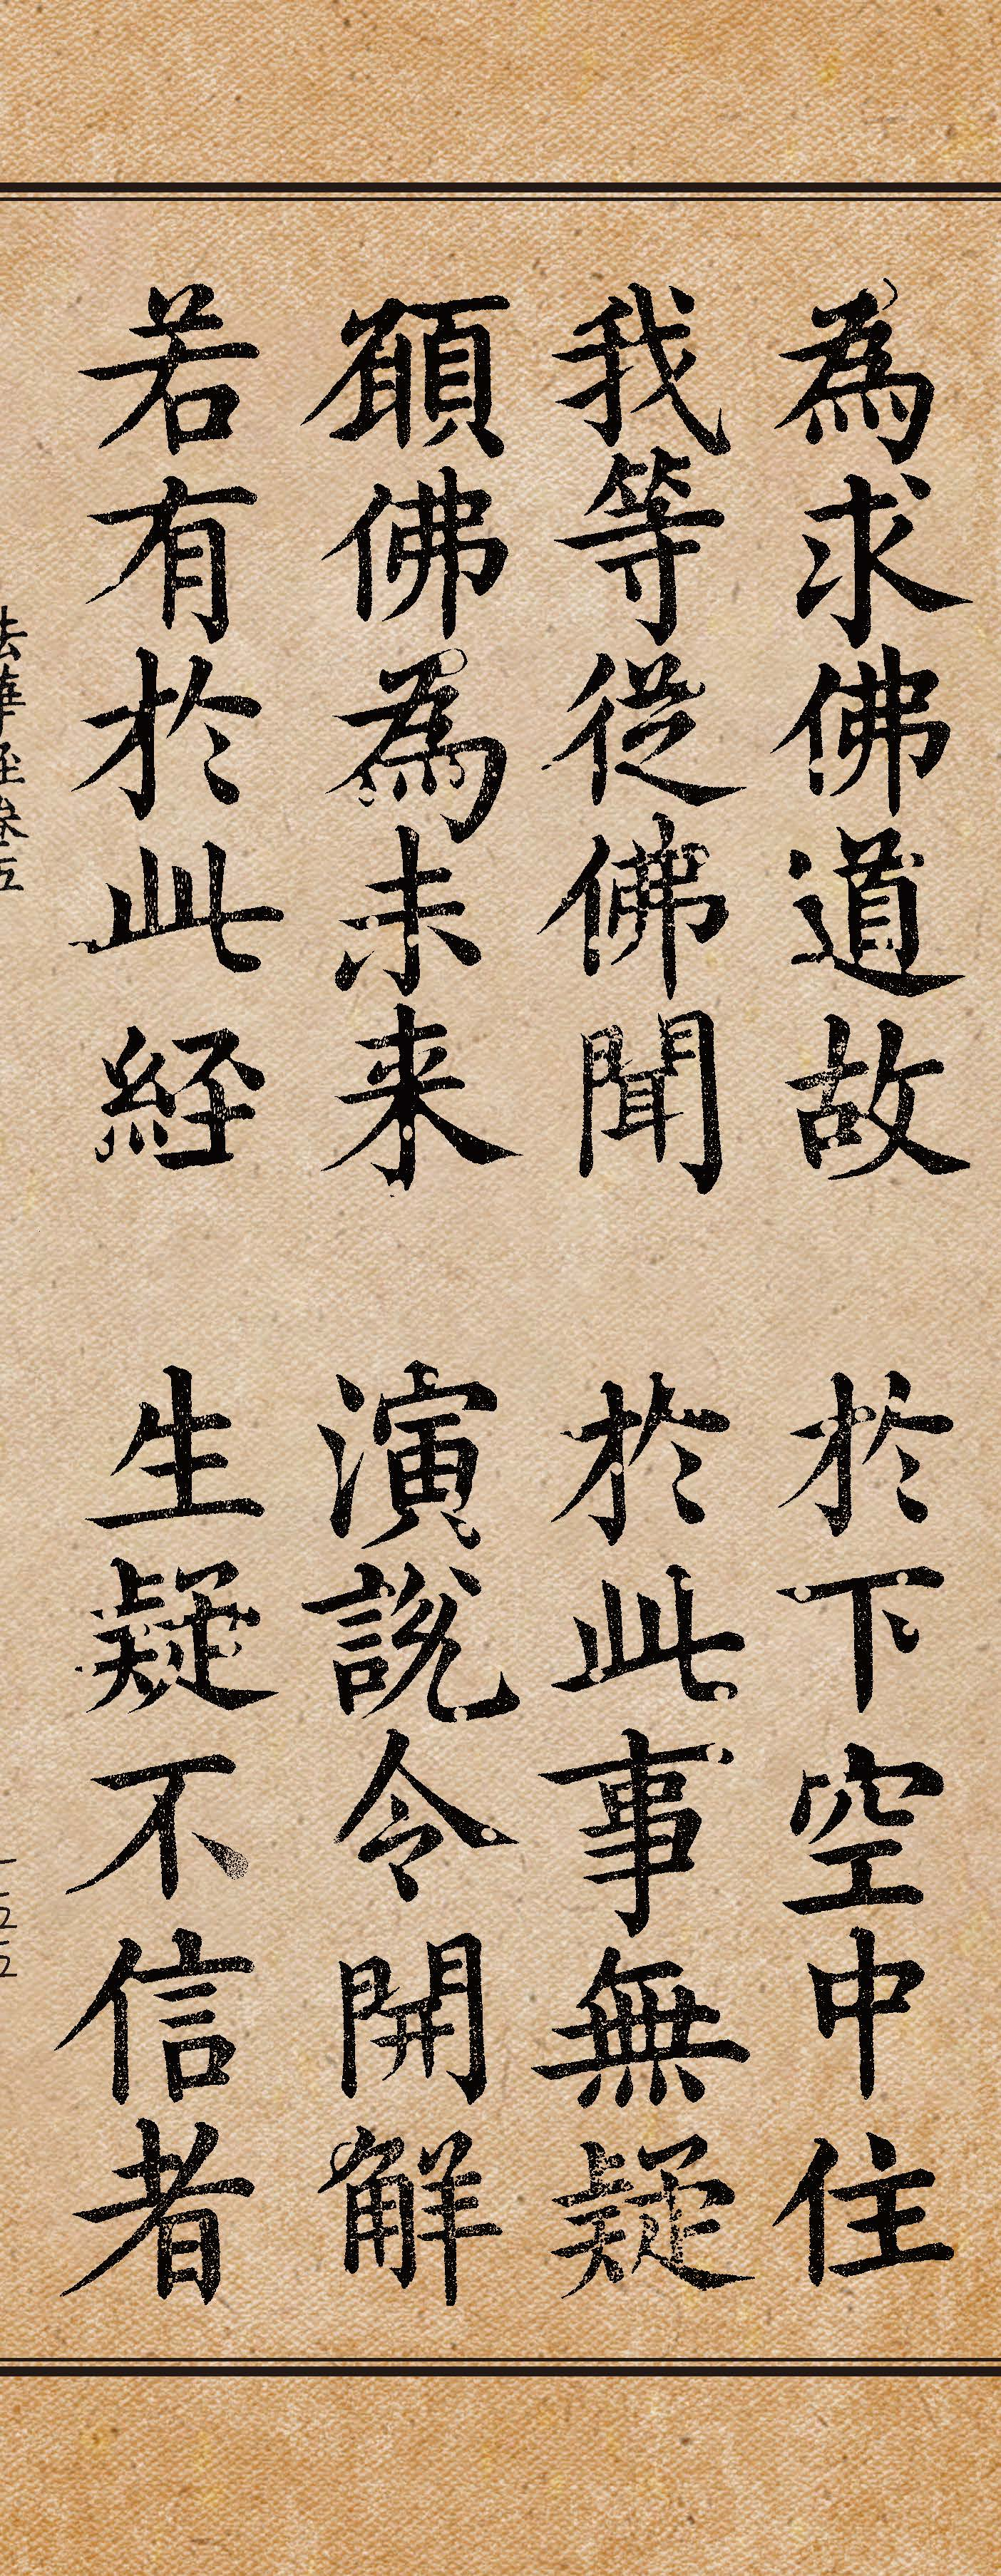 為求佛道故　於下空中住
我等従佛聞　於此事無疑
願佛為未来　演説令開解
若有於此経　生疑不信者
法華経巻五
一五五